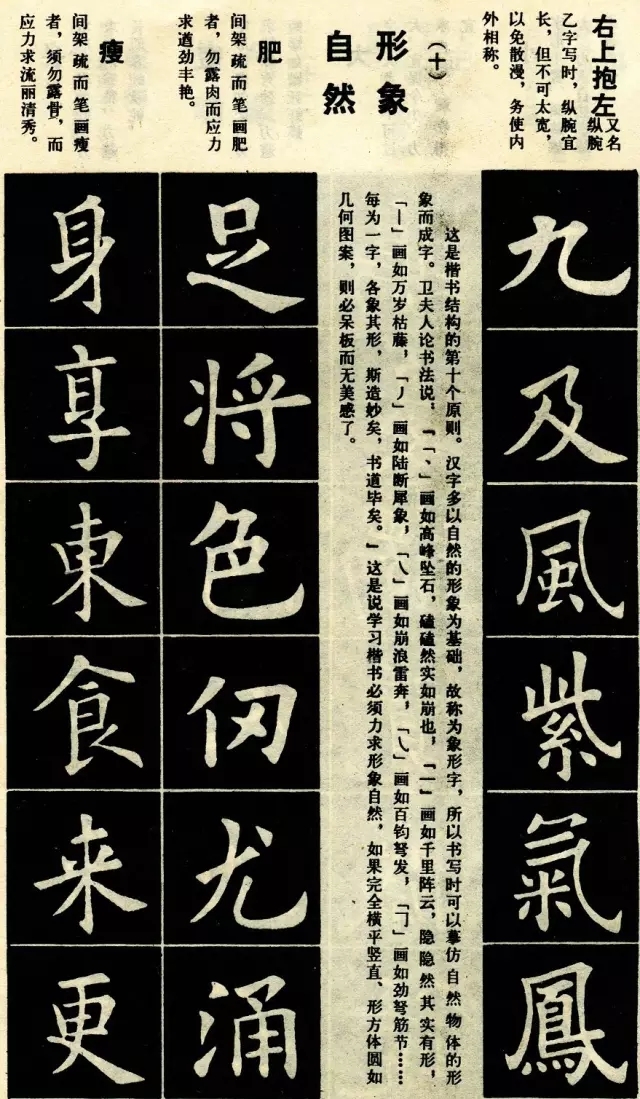 右上抱左
又名纵腕
乙字写时，纵腕宜
长，但不可太宽，
以免散漫，务使内
外相称。
九
及
風
紫
氣
鳳
（十）
形象
自然
这是楷书结构的第十个原则。汉字多以自然的形象为基础，故称为象形字，所以书写时可以摹仿自然物体的形
象而成字。卫夫人论书法说，『「丶」画如高峰坠石，磕磕然实如崩也，「一」画如千里阵云，隐隐然其实有形，
「丨」画如万岁枯藤，「丿」画如陆断犀象，「㇏」画如崩浪雷奔，「㇂」画如百钧弩发，「㇆」画如劲弩筋节……
每为一字，各象其形，斯造妙矣，书道毕矣。』这是说学习楷书必须力求形象自然，如果完全横平竖直、形方体圆如
几何图案，则必呆板而无美感了。
肥
间架疏而笔画肥
者，勿露肉而应力
求遒劲丰艳。
足
将
色
仭
尤
涌
瘦
间架疏而笔画瘦
者，须勿露骨，而
应力求流丽清秀。
身
享
東
食
来
更